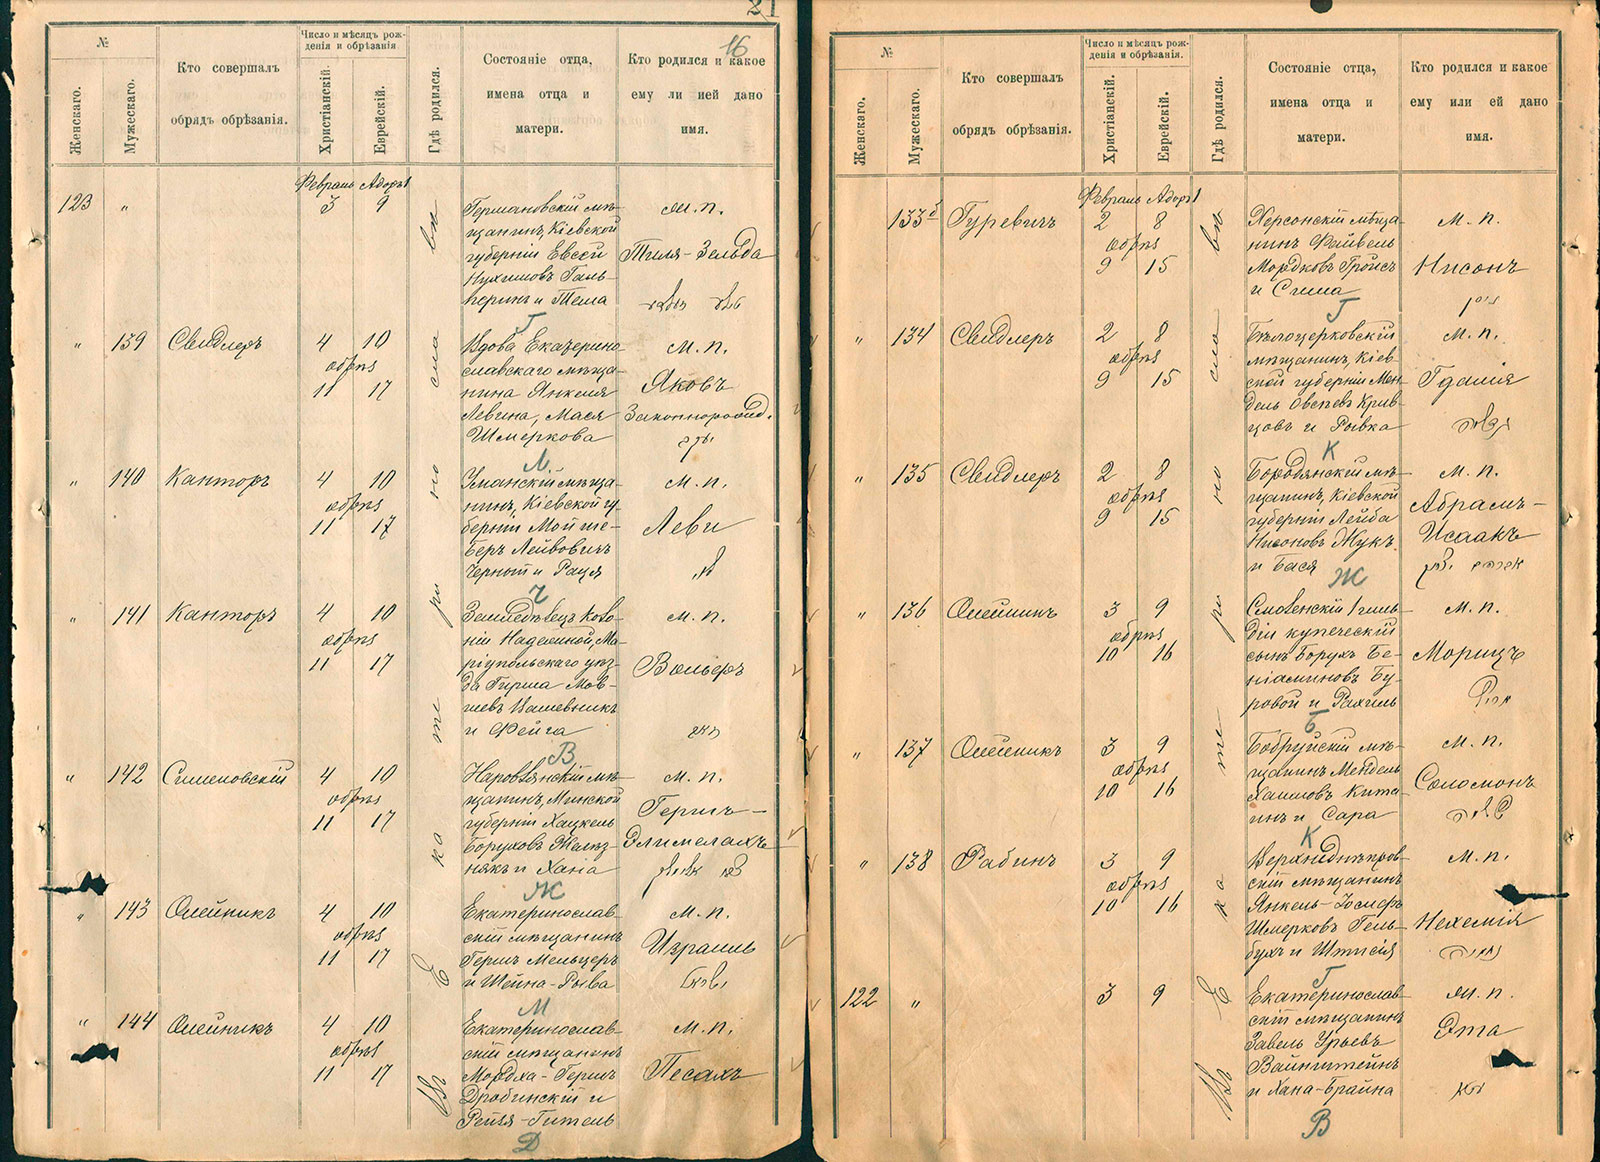 21
16
№
Женскаго.
Мужескаго.
Кто совершалъ
обрядъ обрѣзанія.
Число и мѣсяцъ рож-
денія и обрѣзанія
Христіанскій.
Еврейскій.
Гдѣ родился.
Состояніе отца,
имена отца и
матери.
Кто родился и какое
ему ли ией дано
имя.
Въ Екатеринославѣ
Февраль Адоръ 1
123 „ 3 9
Германовскій мѣ-
щанинъ, Кіевской
губерніи Евсей
Нухимовъ Галь-
перинъ и Тема
Г
м. п.
Тиля-Зельда
„ 139 Свидлеръ 4 10
обрѣз
11 17
Вдова Екатерино-
славскаго мѣща-
нина Янкеля
Левина, Мася
Шмеркова
Л
м. п.
Яковъ
Законнорожд.
„ 140 Канторъ 4 10
обрѣз
11 17
Уманскій мѣща-
нинъ, Кіевской гу-
берніи Мойше-
Беръ Лейбовичъ
Черный и Рация
Ч
м. п.
Леви
לוי
„ 141 Канторъ 4 10
обрѣз
11 17
Земледѣлецъ Коло-
ніи Надежной, Ма-
ріупольскаго уѣз-
да Гирша Мов-
шевъ Вишевникъ
и Фейга
В
м. п.
Вольеръ
„ 142 Симоновскій 4 10
обрѣз
11 17
Наровлянскій мѣ-
щанинъ, Минской
губерніи Хацкель
Боруховъ Желез-
някъ и Хана
Ж
м. п.
Гершъ-
Элимелахъ
„ 143 Олейникъ 4 10
обрѣз
11 17
Екатеринослав-
скій мѣщанинъ
Гершъ Мельцеръ
и Шейна-Рыва
М
м. п.
Израиль
„ 144 Олейникъ 4 10
обрѣз
11 17
Екатеринослав-
скій мѣщанинъ
Мордха-Гершъ
Дробинскій и
Рейзя-Гитель
Д
м. п.
Песахъ
№
Женскаго.
Мужескаго.
Кто совершалъ
обрядъ обрѣзанія.
Число и мѣсяцъ рож-
денія и обрѣзанія.
Христіанскій.
Еврейскій.
Гдѣ родился.
Состояніе отца,
имена отца и
матери.
Кто родился и какое
ему или ей дано
имя.
Въ Екатеринославѣ
Февраль Адоръ 1
133б Гуревичъ 2 8
обрѣз
9 15
Херсонскій мѣща-
нинъ Файвель
Мордковъ Гройсъ
и Сима
Г
м. п.
Нисонъ
„ 134 Свидлеръ 2 8
обрѣз
9 15
Бѣлоцерковскій
мѣщанинъ, Кіев-
ской губерніи Мен-
дель Овсѣевъ Крив-
цовъ и Рывка
К
м. п.
Гдалія
„ 135 Свидлеръ 2 8
обрѣз
9 15
Бородянскій мѣ-
щанинъ, Кіевской
губерніи Лейба
Нисоновъ Жукъ
и Бася
Ж
м. п.
Абрамъ-
Исаакъ
„ 136 Олейникъ 3 9
обрѣз
10 16
Смоленскій 1 гиль-
діи купеческій
сынъ Борухъ Бе-
ніаминовъ Бу-
ровой и Рахиль
Б
м. п.
Морицъ
„ 137 Олейникъ 3 9
обрѣз
10 16
Бобруйскій мѣ-
щанинъ Мендель
Хаимовъ Кита-
инъ и Сара
К
м. п.
Соломонъ
„ 138 Рабинъ 3 9
обрѣз
10 16
Верхнеднѣпров-
скій мѣщанинъ
Янкель-Іосифъ
Шмерковъ Гель-
бухъ и Штисія
Г
м. п.
Нехемія
122 „ 3 9
Екатеринослав-
скій мѣщанинъ
Завель Урьевъ
Вайнштейнъ
и Хана-Брайна
В
м. п.
Эта